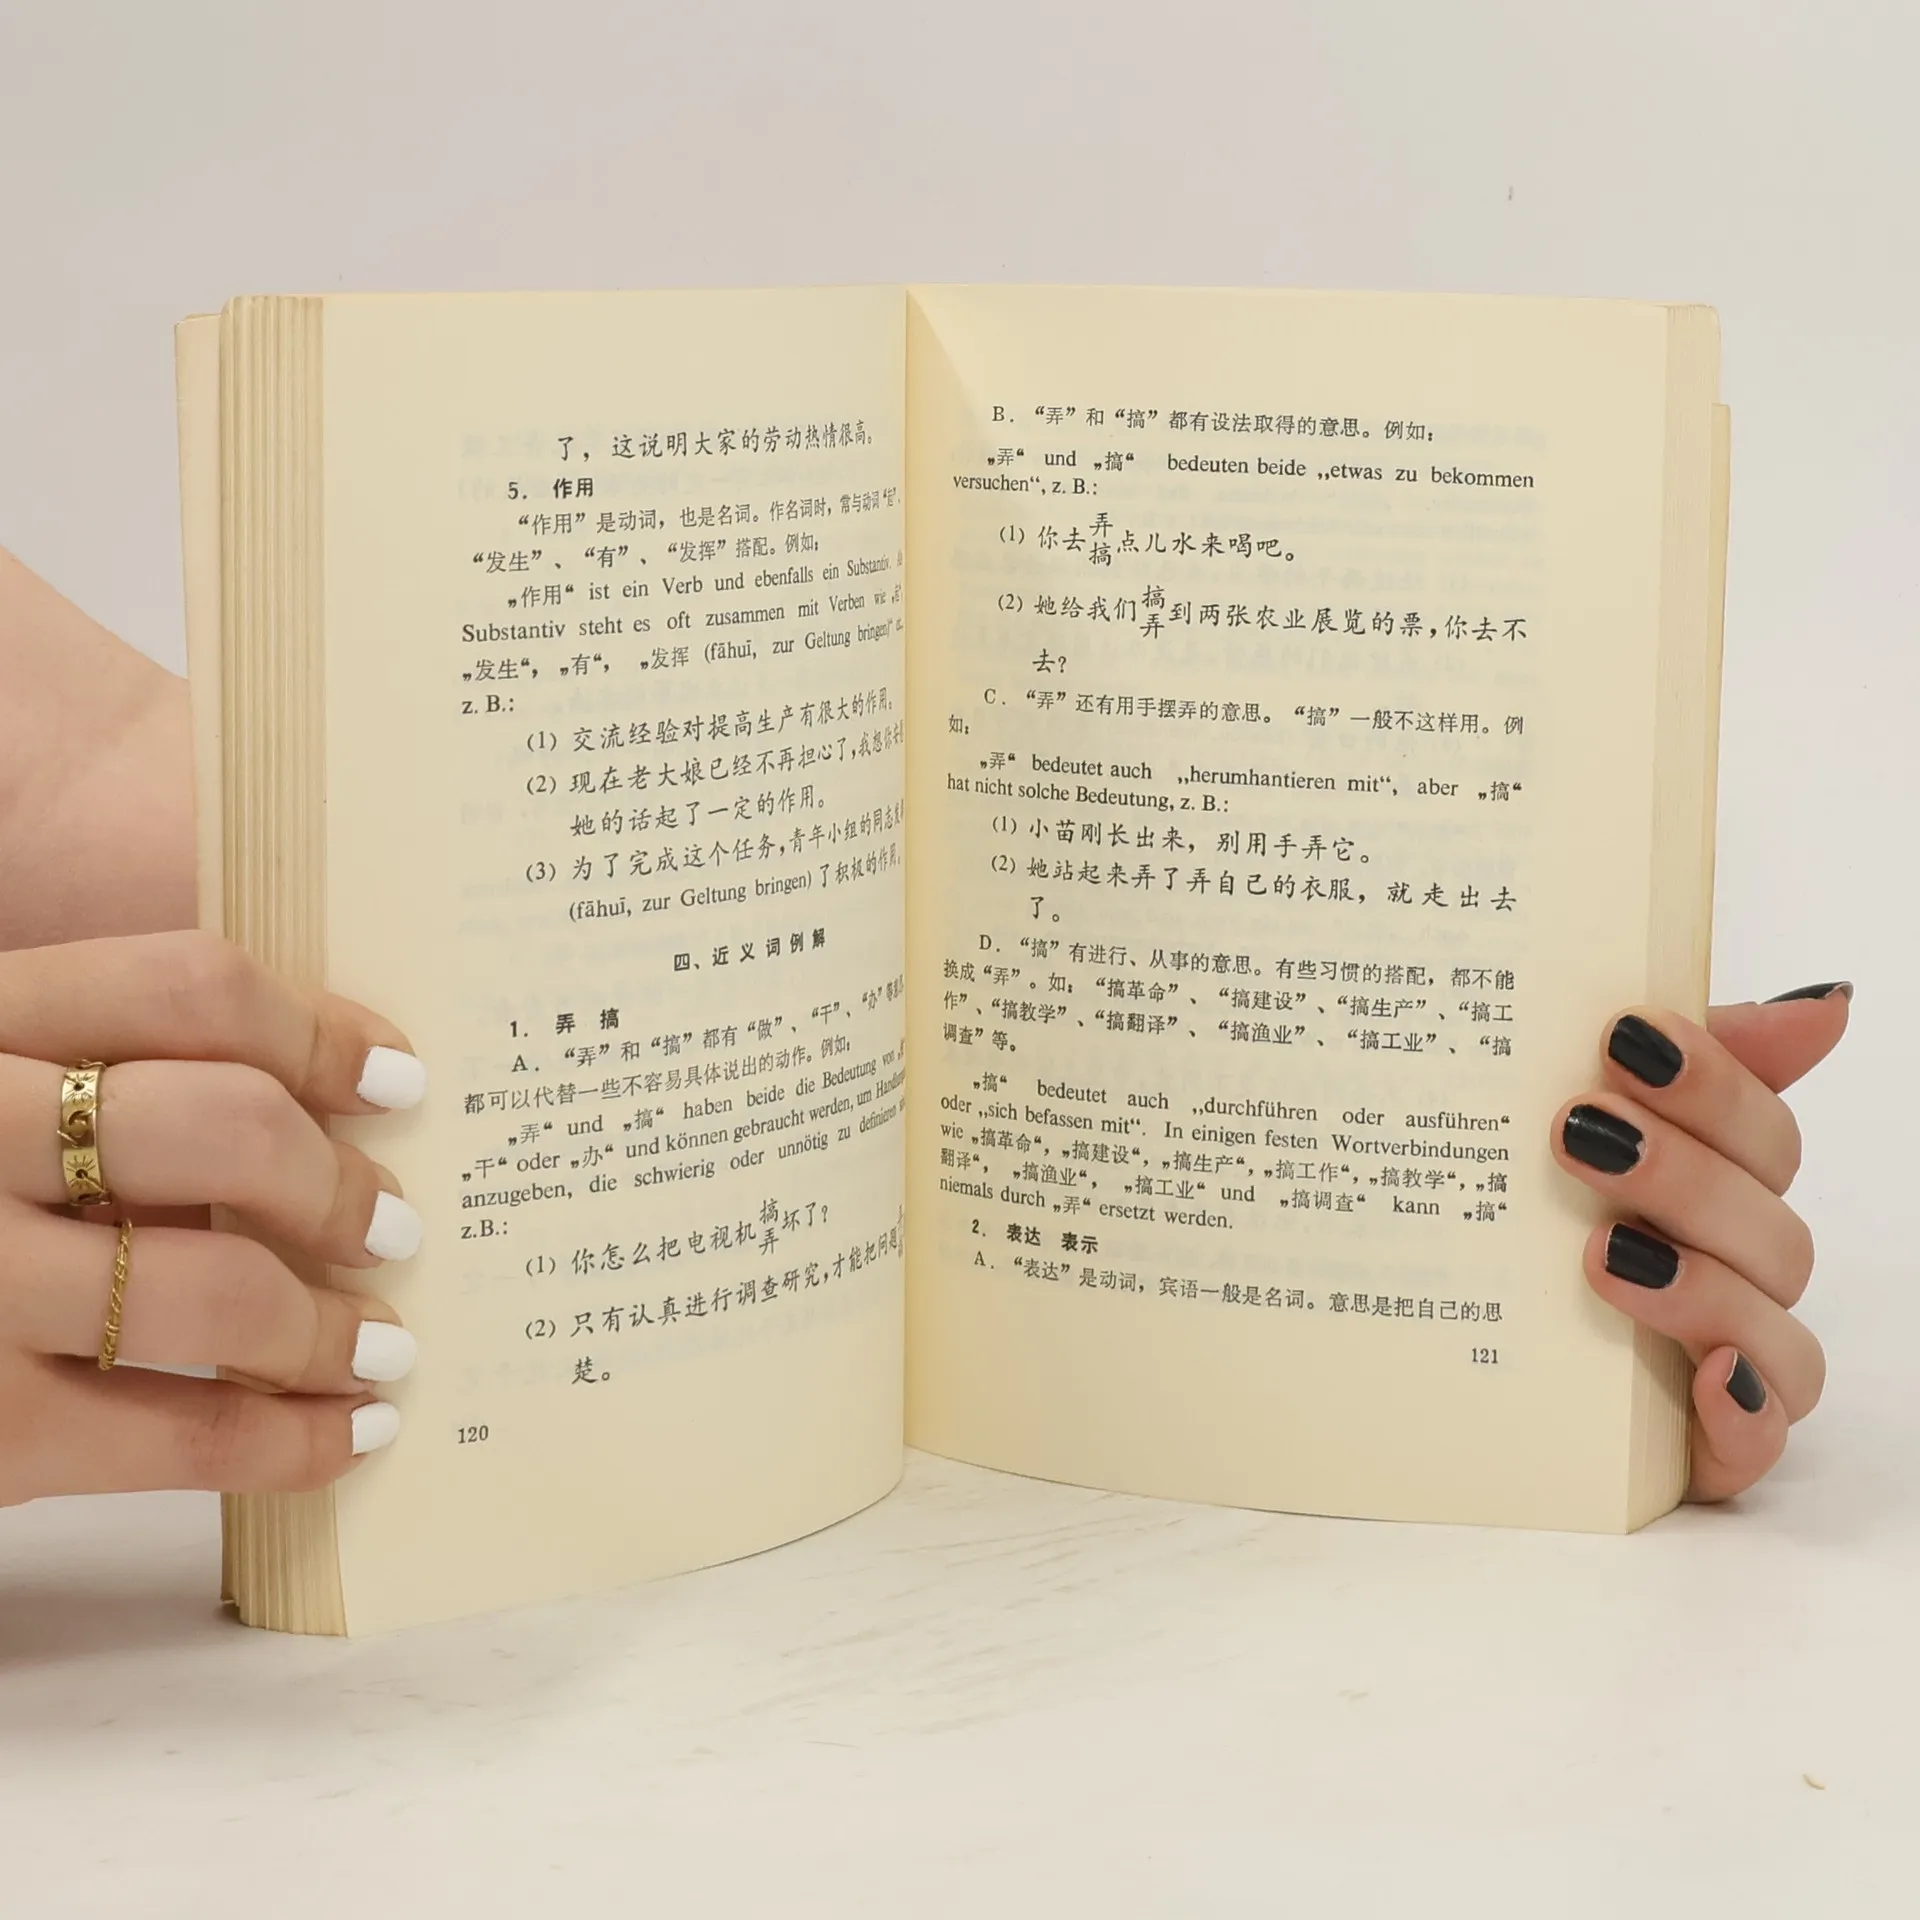 了，这说明大家的劳动热情很高。
5. 作用
“作用”是动词，也是名词。作名词时，常与动词“起”、
“发生”、“有”、“发挥”搭配。例如：
„作用“ ist ein Verb und ebenfalls ein Substantiv.
Substantiv steht es oft zusammen mit Verben wie „起“
„发生“, „有“, „发挥 (fāhuī, zur Geltung bringen)“
z. B.:
(1) 交流经验对提高生产有很大的作用。
(2) 现在老大娘已经不再担心了，我想你
她的话起了一定的作用。
(3) 为了完成这个任务，青年小组的同志
(fāhuī, zur Geltung bringen) 了积极的作用。
四、近义词例解
1. 弄 搞
A. “弄”和“搞”都有“做”、“干”、“办”等
都可以代替一些不容易具体说出的动作。例如：
„弄“ und „搞“ haben beide die Bedeutung von
„干“ oder „办“ und können gebraucht werden, um
anzugeben, die schwierig oder unnötig zu definieren
z.B.:
(1) 你怎么把电视机搞弄坏了？
(2) 只有认真进行调查研究，才能把问题
楚。
120
B. “弄”和“搞”都有设法取得的意思。例如：
„弄“ und „搞“ bedeuten beide „etwas zu bekommen
versuchen“, z. B.:
(1) 你去弄搞点儿水来喝吧。
(2) 她给我们搞弄到两张农业展览的票，你去不
去？
C. “弄”还有用手摆弄的意思。“搞”一般不这样用。例
如：
„弄“ bedeutet auch „herumhantieren mit“, aber „搞“
hat nicht solche Bedeutung, z. B.:
(1) 小苗刚长出来，别用手弄它。
(2) 她站起来弄了弄自己的衣服，就走出去
了。
D. “搞”有进行、从事的意思。有些习惯的搭配，都不能
换成“弄”。如：“搞革命”、“搞建设”、“搞生产”、“搞工
作”、“搞教学”、“搞翻译”、“搞渔业”、“搞工业”、“搞
调查”等。
„搞“ bedeutet auch „durchführen oder ausführen“
oder „sich befassen mit“. In einigen festen Wortverbindungen
wie „搞革命“, „搞建设“, „搞生产“, „搞工作“, „搞教学“, „搞
翻译“, „搞渔业“, „搞工业“ und „搞调查“ kann „搞“
niemals durch „弄“ ersetzt werden.
2. 表达 表示
A. “表达”是动词，宾语一般是名词。意思是把自己的思
121